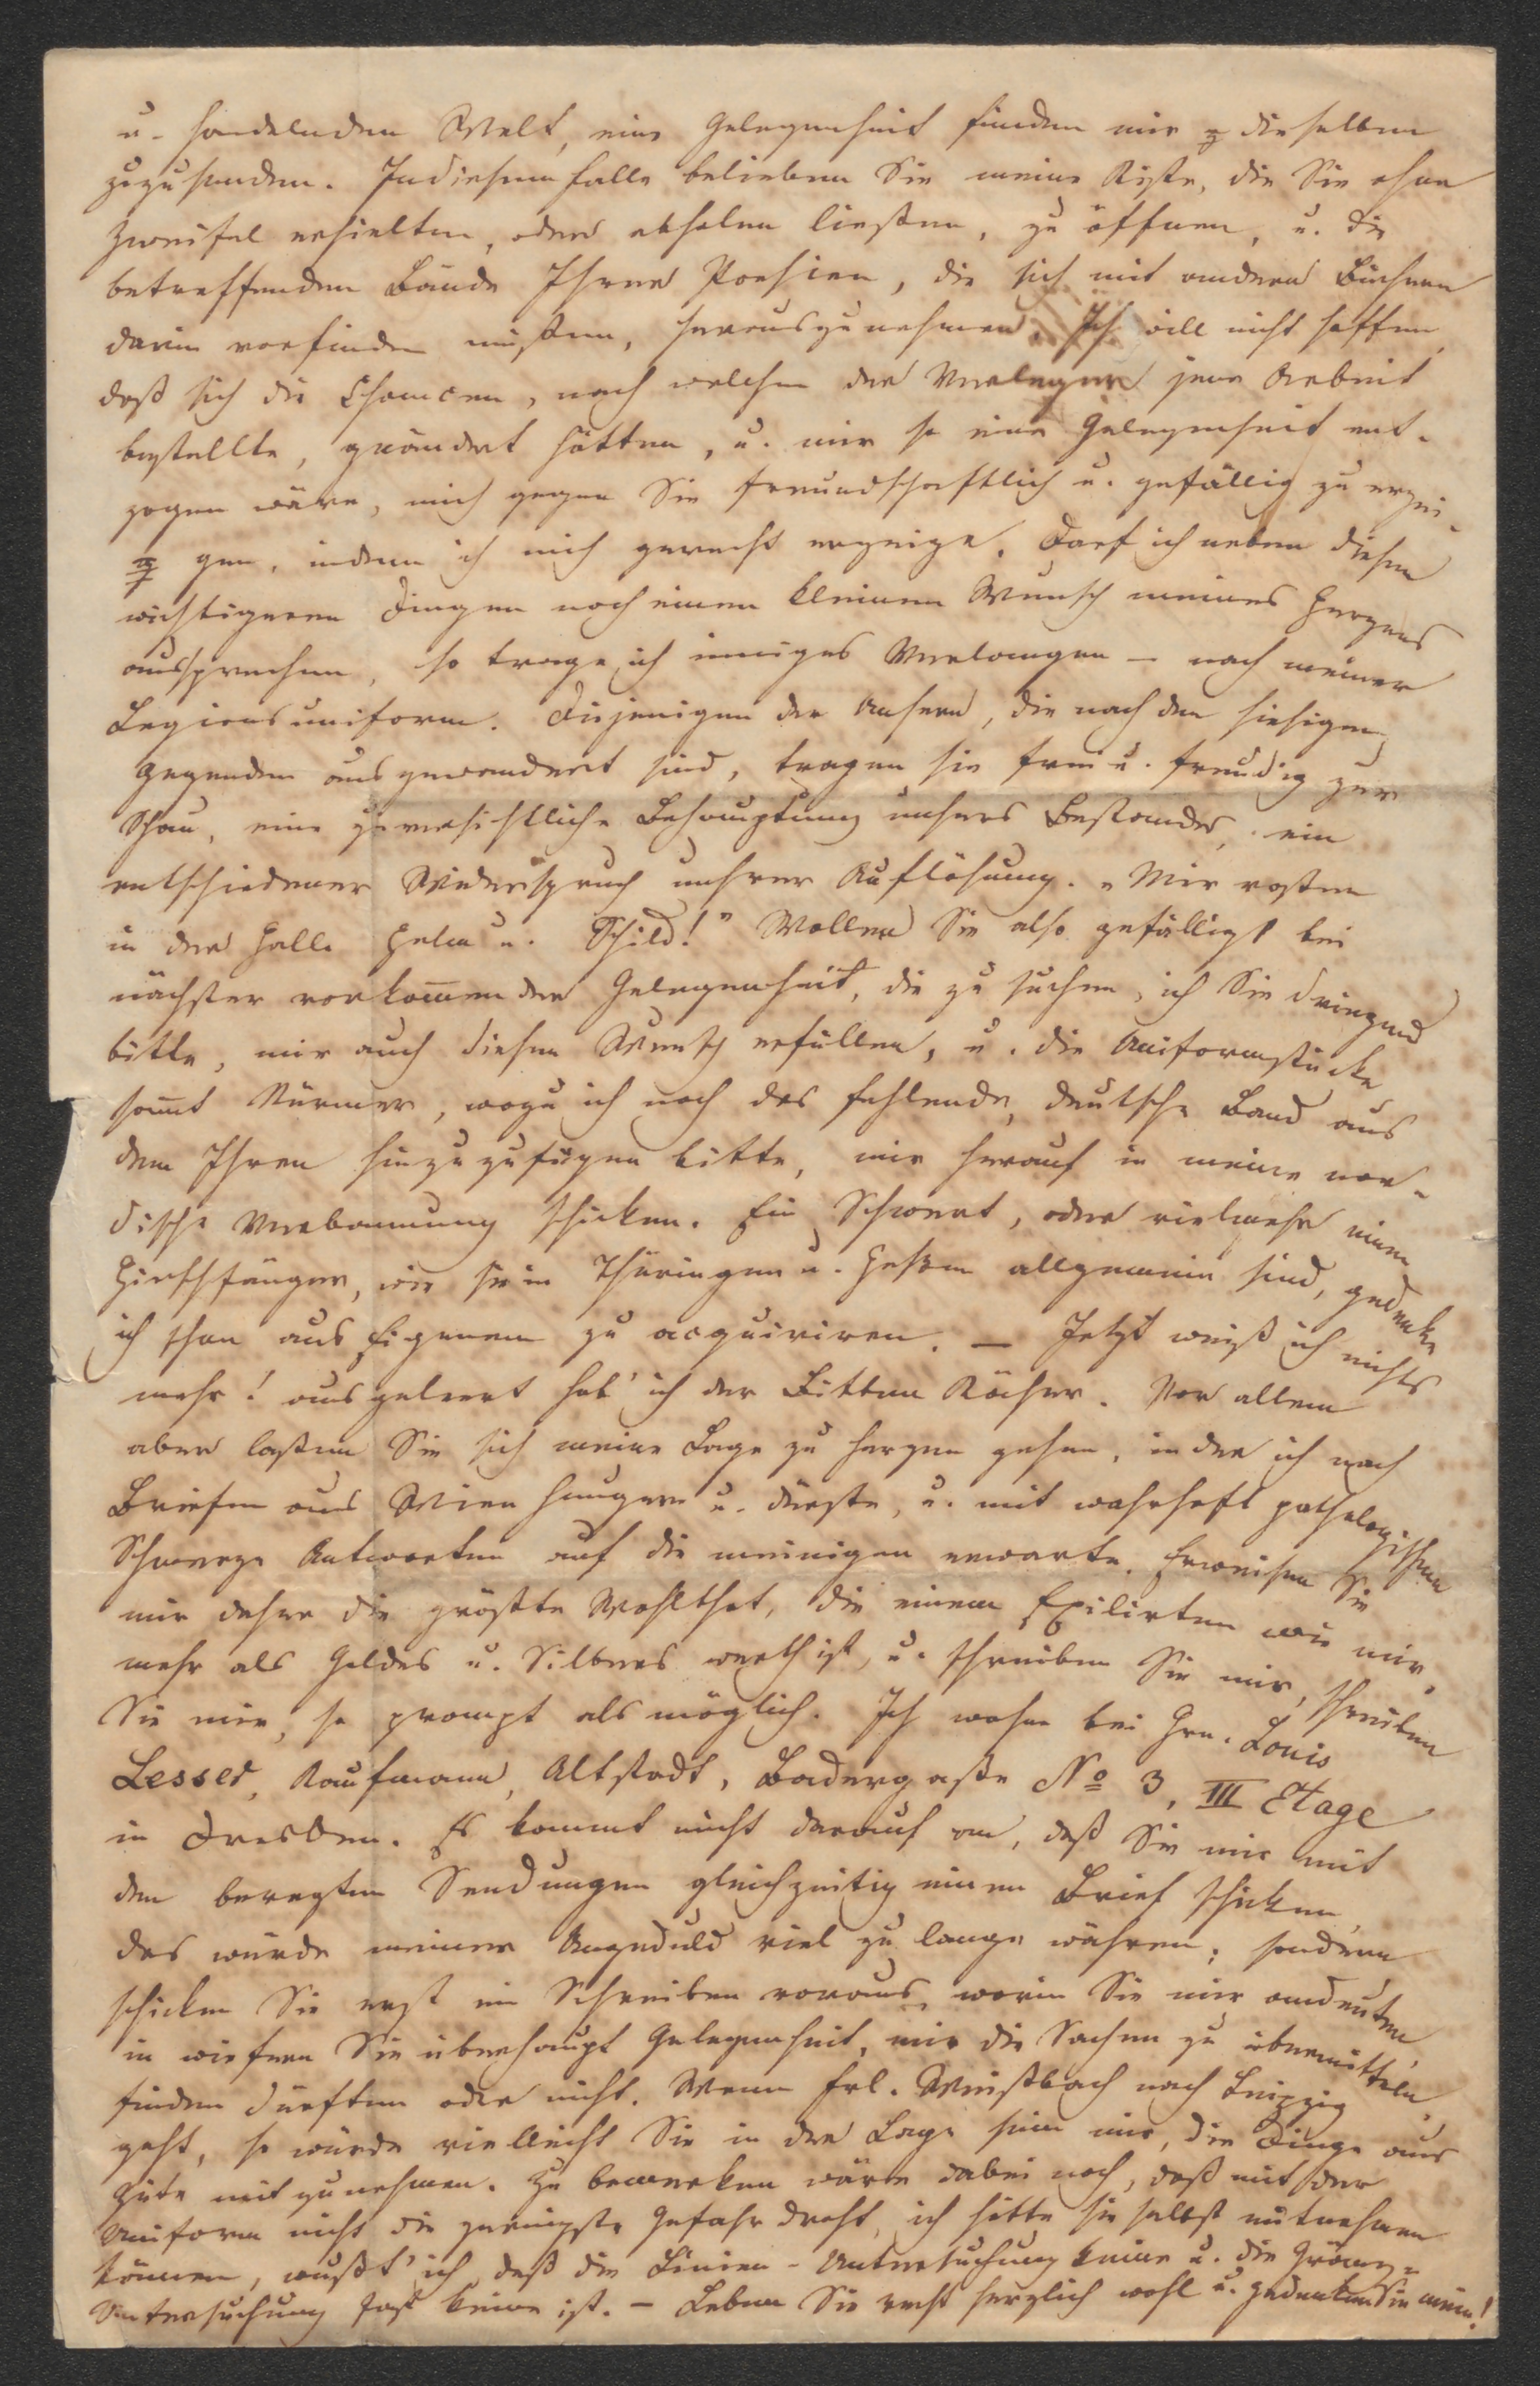 u. handelnden Welt, eine Gelegenheit finden mir dieselben
zuzusenden. In diesem Falle belieben Sie meine Kiste, die Sie ohne
Zweifel erhielten, oder abholen ließen, zu öffnen, u. die
betreffenden Bände Ihrer Poesien, die sich mit andern Büchern
darin vorfinden müßen, herauszunehmen. Ich will nicht hoffen,
daß sich die Chancen, nach welchen der Verleger jene Arbeit
bestellte, geändert hätten, u. mir so eine Gelegenheit ent-
zogen wäre, mich gegen Sie freundschaftlich u. gefällig zu erzei-
gen, indem ich mich gerecht erzeige. Darf ich neben diesen
wichtigeren Dingen noch einen kleinen Wunsch meines Herzens
aussprechen, so trage ich inniges Verlangen – nach meiner
Legionsuniform. Diejenigen der Unsern, die nach den hiesigen
Gegenden ausgewandert sind, tragen sie frei u. freudig zur
Schau, eine zuversichtliche Behauptung unsers Bestandes, ein
entschiedener Widerspruch unsrer Auflösung. „Mir rosten
in der Halle Helm u. Schild!" Wollen Sie also gefälligst bei
nächster vorkom̅ender Gelegenheit, die zu suchen, ich Sie dringend
bitte, mir auch diesen Wunsch erfüllen, u. die Uniformstücke
som̅t Stürmer, wozu ich noch das fehlende, deutsche Band aus
dem Ihren hinzuzufügen bitte, mir herauf in meine nor-
dische Verbannung schicken. Ein Schwert, oder vielmehr einen
Hirschfänger, wie sie in Thüringen u. Heßen allgemein sind, gedenke
ich schon aus Eigenem zu acquiriren. – Jetzt weiß ich nichts
mehr! ausgeleert hab' ich der Bitten Köcher. Vor allem
aber laßen Sie sich meine Lage zu Herzen gehen, in der ich nach
Briefen aus Wien hungere u. dürste, u. mit wahrhaft pathologischem
Schmerze Antworten auf die meinigen erwarte. Erweisen Sie
mir daher die größte Wohlthat, die einem Exilirten wie mir,
mehr als Goldes u. Silbers werth ist, u. schreiben Sie mir, schreiben
Sie mir, so prompt als möglich. Ich wohne bei Hrn. Louis
Lesser, Kaufmann, Altstadt, Badergaße No 3, III Etage
in Dresden. Es kommt nicht darauf an, daß Sie mir mit
den beregten Sendungen gleichzeitig einen Brief schicken,
das würde meiner Ungeduld viel zu lange währen; sondern
schicken Sie erst ein Schreiben voraus, worin Sie mir andeuten,
in wiefern Sie überhaupt Gelegenheit, mir die Sachen zu übermitteln
finden dürften oder nicht. Wenn Frl. Weißbach nach Leipzig
geht, so würde vielleicht Sie in der Lage sein mir, die Dinge aus
Güte mit zu nehmen. Zu bemerken wäre dabei noch, daß mit der
Uniform nicht die geringste Gefahr droht, ich hätte sie selbst mitnehmen
können, wußt' ich, daß die Linien-Untersuchung keine u. die Gränz-
Untersuchung fast keine ist. – Leben Sie recht herzlich wohl u. gedenken Sie mein!